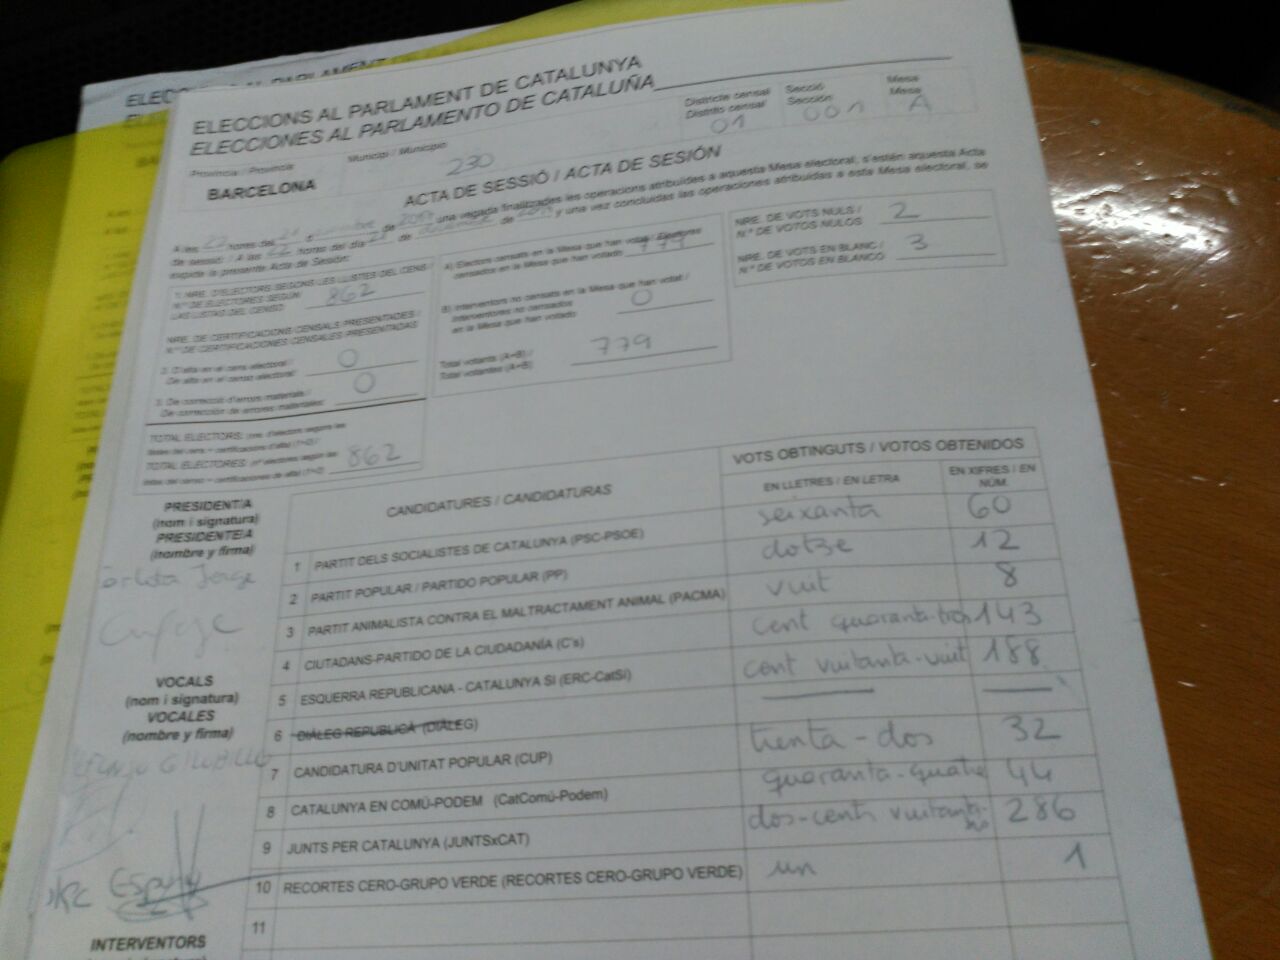 ELECCIONS AL PARLAMENT DE CATALUNYA
ELECCIONES AL PARLAMENTO DE CATALUÑA
Província / Provincia
BARCELONA
Municipi / Municipio
230
Districte censal
Distrito censal
01
Secció
Sección
001
Mesa
Mesa
A
ACTA DE SESSIÓ / ACTA DE SESIÓN
A les 22 hores del 21 de de 2017 una vegada finalitzades les operacions atribuïdes a aquesta Mesa electoral, s'estén aquesta Acta
de sessió: / A las 22 horas del día 21 de de y una vez concluidas las operaciones atribuidas a esta Mesa electoral, se
expide la presente Acta de Sesión:
1. NRE. D'ELECTORS SEGONS LES LLISTES DEL CENS /
N.º DE ELECTORES SEGÚN
LAS LISTAS DEL CENSO
862
NRE. DE CERTIFICACIONS CENSALS PRESENTADES /
N.º DE CERTIFICACIONES CENSALES PRESENTADAS
2. D'alta en el cens electoral /
De alta en el censo electoral:
0
3. De correcció d'errors materials /
De corrección de errores materiales:
0
TOTAL ELECTORS: (nre. d'electors segons les
llistes del cens + certificacions d'alta) (1+2) /
TOTAL ELECTORES: (nº electores según las
listas del censo + certificaciones de alta) (1+2)
862
A) Electors censats en la Mesa que han votat / Electores
censados en la Mesa que han votado
779
B) Interventors no censats en la Mesa que han votat /
Interventores no censados
en la Mesa que han votado
0
Total votants (A+B) /
Total votantes (A+B)
779
NRE. DE VOTS NULS /
N.º DE VOTOS NULOS
2
NRE. DE VOTS EN BLANC /
N.º DE VOTOS EN BLANCO
3
PRESIDENT/A
(nom i signatura)
PRESIDENTE/A
(nombre y firma)
Jorge
VOCALS
(nom i signatura)
VOCALES
(nombre y firma)
INTERVENTORS
CANDIDATURES / CANDIDATURAS
VOTS OBTINGUTS / VOTOS OBTENIDOS
EN LLETRES / EN LETRA
EN XIFRES / EN
NÚM.
1 PARTIT DELS SOCIALISTES DE CATALUNYA (PSC-PSOE) seixanta 60
2 PARTIT POPULAR / PARTIDO POPULAR (PP) dotze 12
3 PARTIT ANIMALISTA CONTRA EL MALTRACTAMENT ANIMAL (PACMA) vuit 8
4 CIUTADANS-PARTIDO DE LA CIUDADANÍA (C's) cent quaranta-tres 143
5 ESQUERRA REPUBLICANA - CATALUNYA SÍ (ERC-CatSí) cent vuitanta-vuit 188
6 DIÀLEG REPUBLICÀ (DIÀLEG)
7 CANDIDATURA D'UNITAT POPULAR (CUP) trenta-dos 32
8 CATALUNYA EN COMÚ-PODEM (CatComú-Podem) quaranta-quatre 44
9 JUNTS PER CATALUNYA (JUNTSxCAT) dos-cents vuitanta-sis 286
10 RECORTES CERO-GRUPO VERDE (RECORTES CERO-GRUPO VERDE) un 1
11